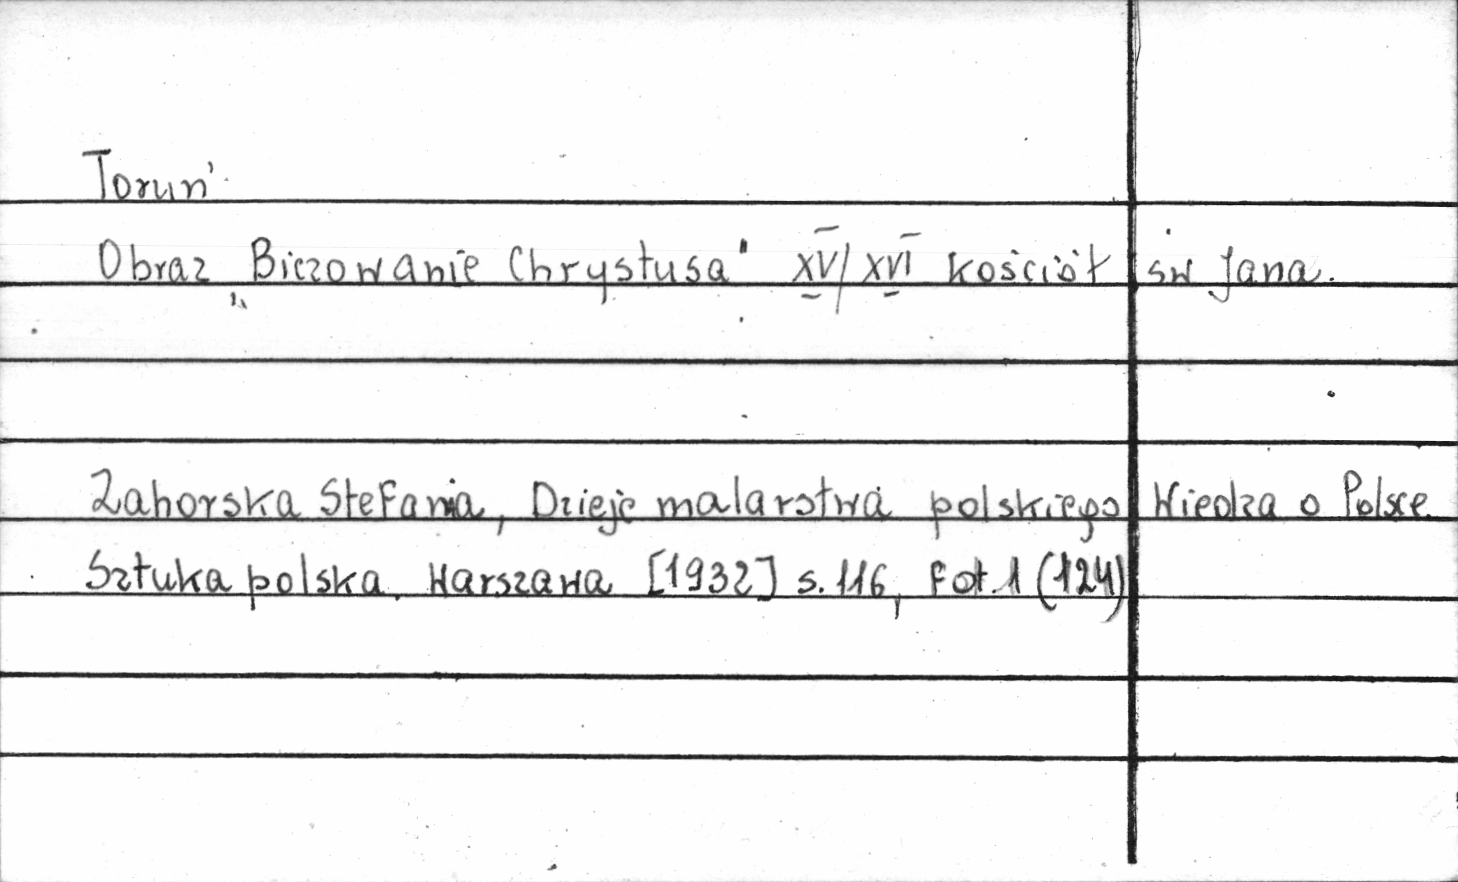 Toruń
Obraz „Biczowanie Chrystusa" XV/XVI Kościół św Jana.
Zahorska Stefania, Dzieje malarstwa polskiego Wiedza o Polsce
Sztuka polska. Warszawa [1932] s. 116, fot. 1 (124)